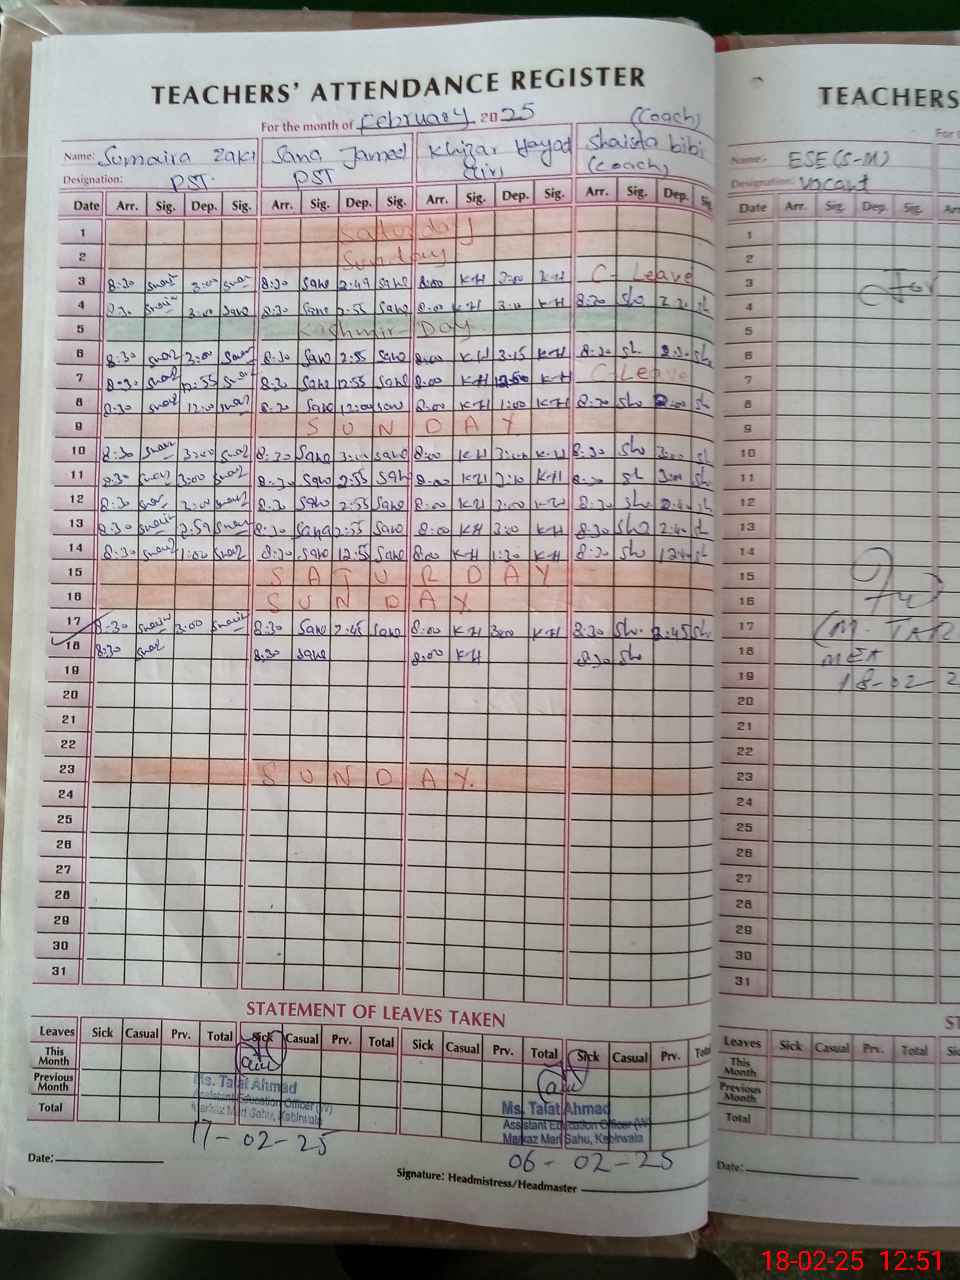 TEACHERS' ATTENDANCE REGISTER
For the month of February 2025
(Coach)
Name: Sumaira Zaki Sana Jamal Khizar Hayat Shaista bibi
Designation: PST. PST (Coach)
Date Arr. Sig. Dep. Sig. Arr. Sig. Dep. Sig. Arr. Sig. Dep. Sig. Arr. Sig. Dep. Sig
1 Saturday
2 Sunday
3 8:30 3:00 8:30 Sana 2:49 Sana 8:00 K-H 3:00 K-H C-Leave
4 8:30 8:30 Sana 2:55 Sana 8:00 K-H 3:10 K-H 8:30 Sh
5 Kashmir-Day
6 8:30 3:00 8:30 Sana 2:55 Sana 8:00 KH 3:15 K-H 8:30 Sh. Sh
7 8:30 12:55 8:30 Sana 12:55 Sana 8:00 KH K-H C-Leave
8 8:30 12:00 8:30 Sana 12:00 Sana 8:00 KH 1:00 KH 8:30 Sho Sh
9 SUNDAY
10 8:30 3:00 8:30 Sana 3:00 Sana 8:00 KH K-H 8:30 Sho 3:00 Sh
11 8:30 3:00 8:30 Sana 2:55 Sana 8:00 KH 3:10 K-H Sh 3:00 Sh
12 8:30 3:00 8:30 Sana 2:55 Sana 8:00 KH 3:00 8:30 Sho Sh
13 8:30 2:59 8:30 Sana 2:55 Sana 8:00 KH 3:10 K-H 8:30 Sho 2:40 Sh
14 8:30 1:00 8:30 Sana 12:55 Sana 8:00 KH 1:30 K-H 8:30 Sho Sh
15 SATURDAY
16 SUNDAY
17 8:30 3:00 8:30 Sana 2:45 Sana 8:00 KH 3:00 K-H 8:30 Sho 2:45 Sh
18 8:30 8:30 Sana 8:00 KH 8:30 Sho
19
20
21
22
23 SUNDAY.
24
25
26
27
28
29
30
31
STATEMENT OF LEAVES TAKEN
Leaves Sick Casual Prv. Total Sick Casual Prv. Total Sick Casual Prv. Total Sick Casual Prv. Total
This Month
Previous Month
Total
Ms. Talat Ahmad
Assistant Education Officer (W)
Markaz Mari Sahu, Kabirwala
17-02-25
Ms. Talat Ahmad
Assistant Education Officer (W)
Markaz Mari Sahu, Kabirwala
06-02-25
Date:
Signature: Headmistress/Headmaster
TEACHERS
For
Name: ESE(S-M)
Designation: Vacant
Date Arr. Sig. Dep. Sig. Arr
1
2
3
4
5
6
7
8
9
10
11
12
13
14
15
16
17
18
19
20
21
22
23
24
25
26
27
28
29
30
31
(M. TAR
MEA
18-02-2
ST
Leaves Sick Casual Prv. Total Sic
This Month
Previous Month
Total
Date:
18-02-25 12:51